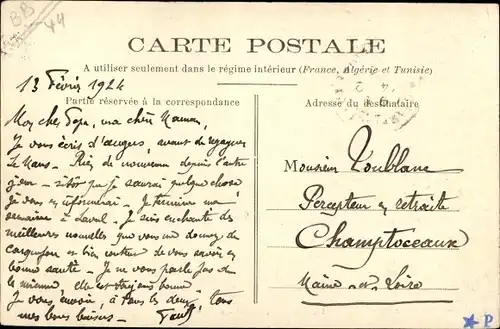 BB
44
CARTE POSTALE
A utiliser seulement dans le régime intérieur (France, Algérie et Tunisie)
13 Février 1924
Partie réservée à la correspondance
Adresse du destinataire
Mon cher Papa, ma chère Maman,
Je vous écris d'angers, avant de regagner
Le Mans. Rien de nouveau depuis l'autre
jour - sitôt que je saurai quelque chose
je vous en informerai. Je termine ma
semaine à Laval. Je suis enchanté des
meilleures nouvelles que vous me donnez de
et bien content de vous savoir en
bonne santé. Je ne vous parle pas de
la mienne, elle est toujours bonne.
Je vous envoie, à tous les deux, tous
mes bons baisers -
Monsieur Toublanc
Percepteur en retraite
Champtoceaux
Maine-et-Loire
P